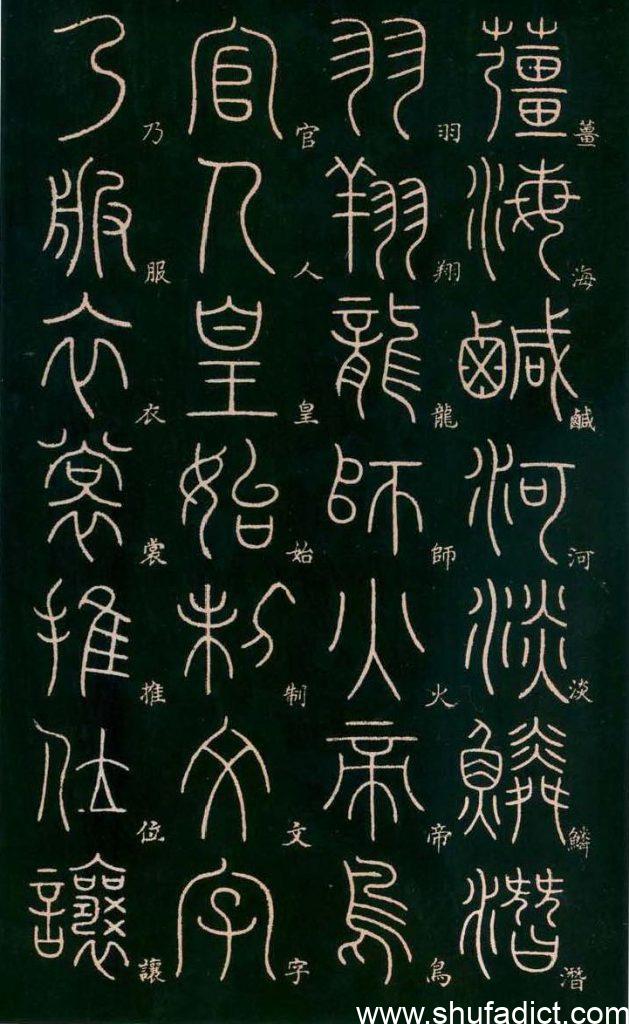 薑海鹹河淡鱗潛
羽翔龍師火帝鳥
官人皇始制文字
乃服衣裳推位讓
www.shufadict.com